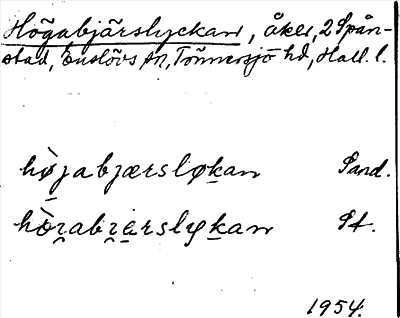 Högabjärslyckan, åker, 2 Spån-
stad, Enslövs sn, Tönnersjö hd, Hall. l.
hø̀jabjærsløkan Sand.
hòjabjærslyckan St.
1954.